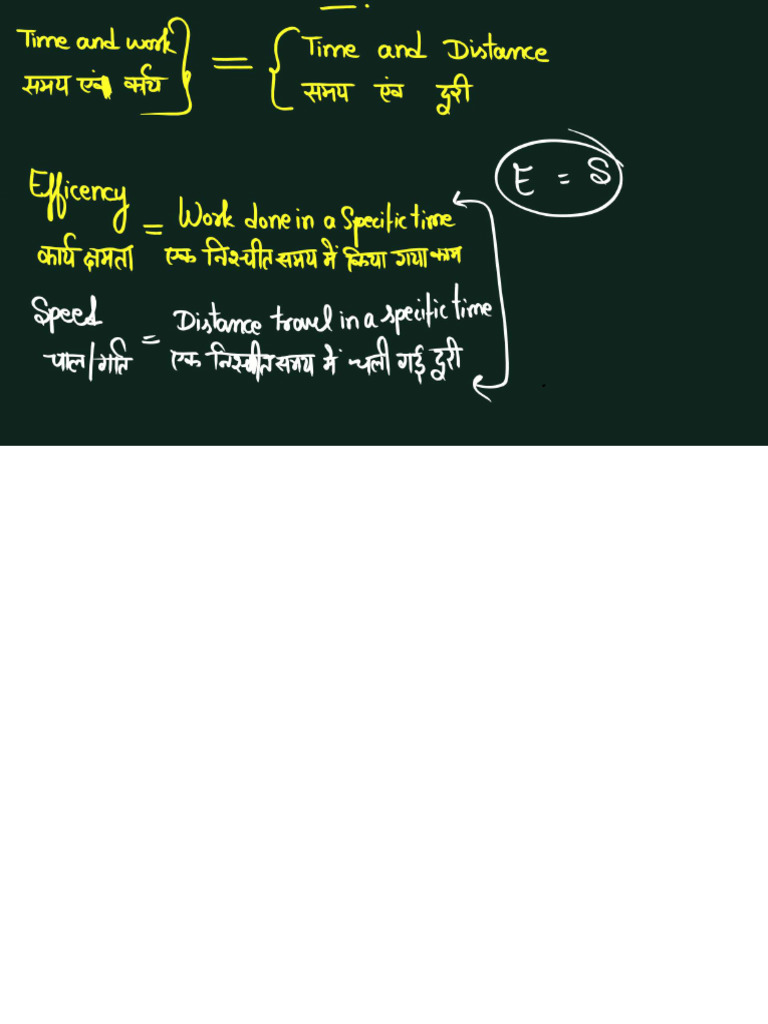 Time and work = Time and Distance
समय एंव कार्य समय एंव दूरी
E = S
Efficency = Work done in a Specific time
कार्य क्षमता एक निश्चीत समय में किया गया काम
Speed = Distance travel in a specific time
चाल/गति एक निश्चीत समय में चली गई दूरी